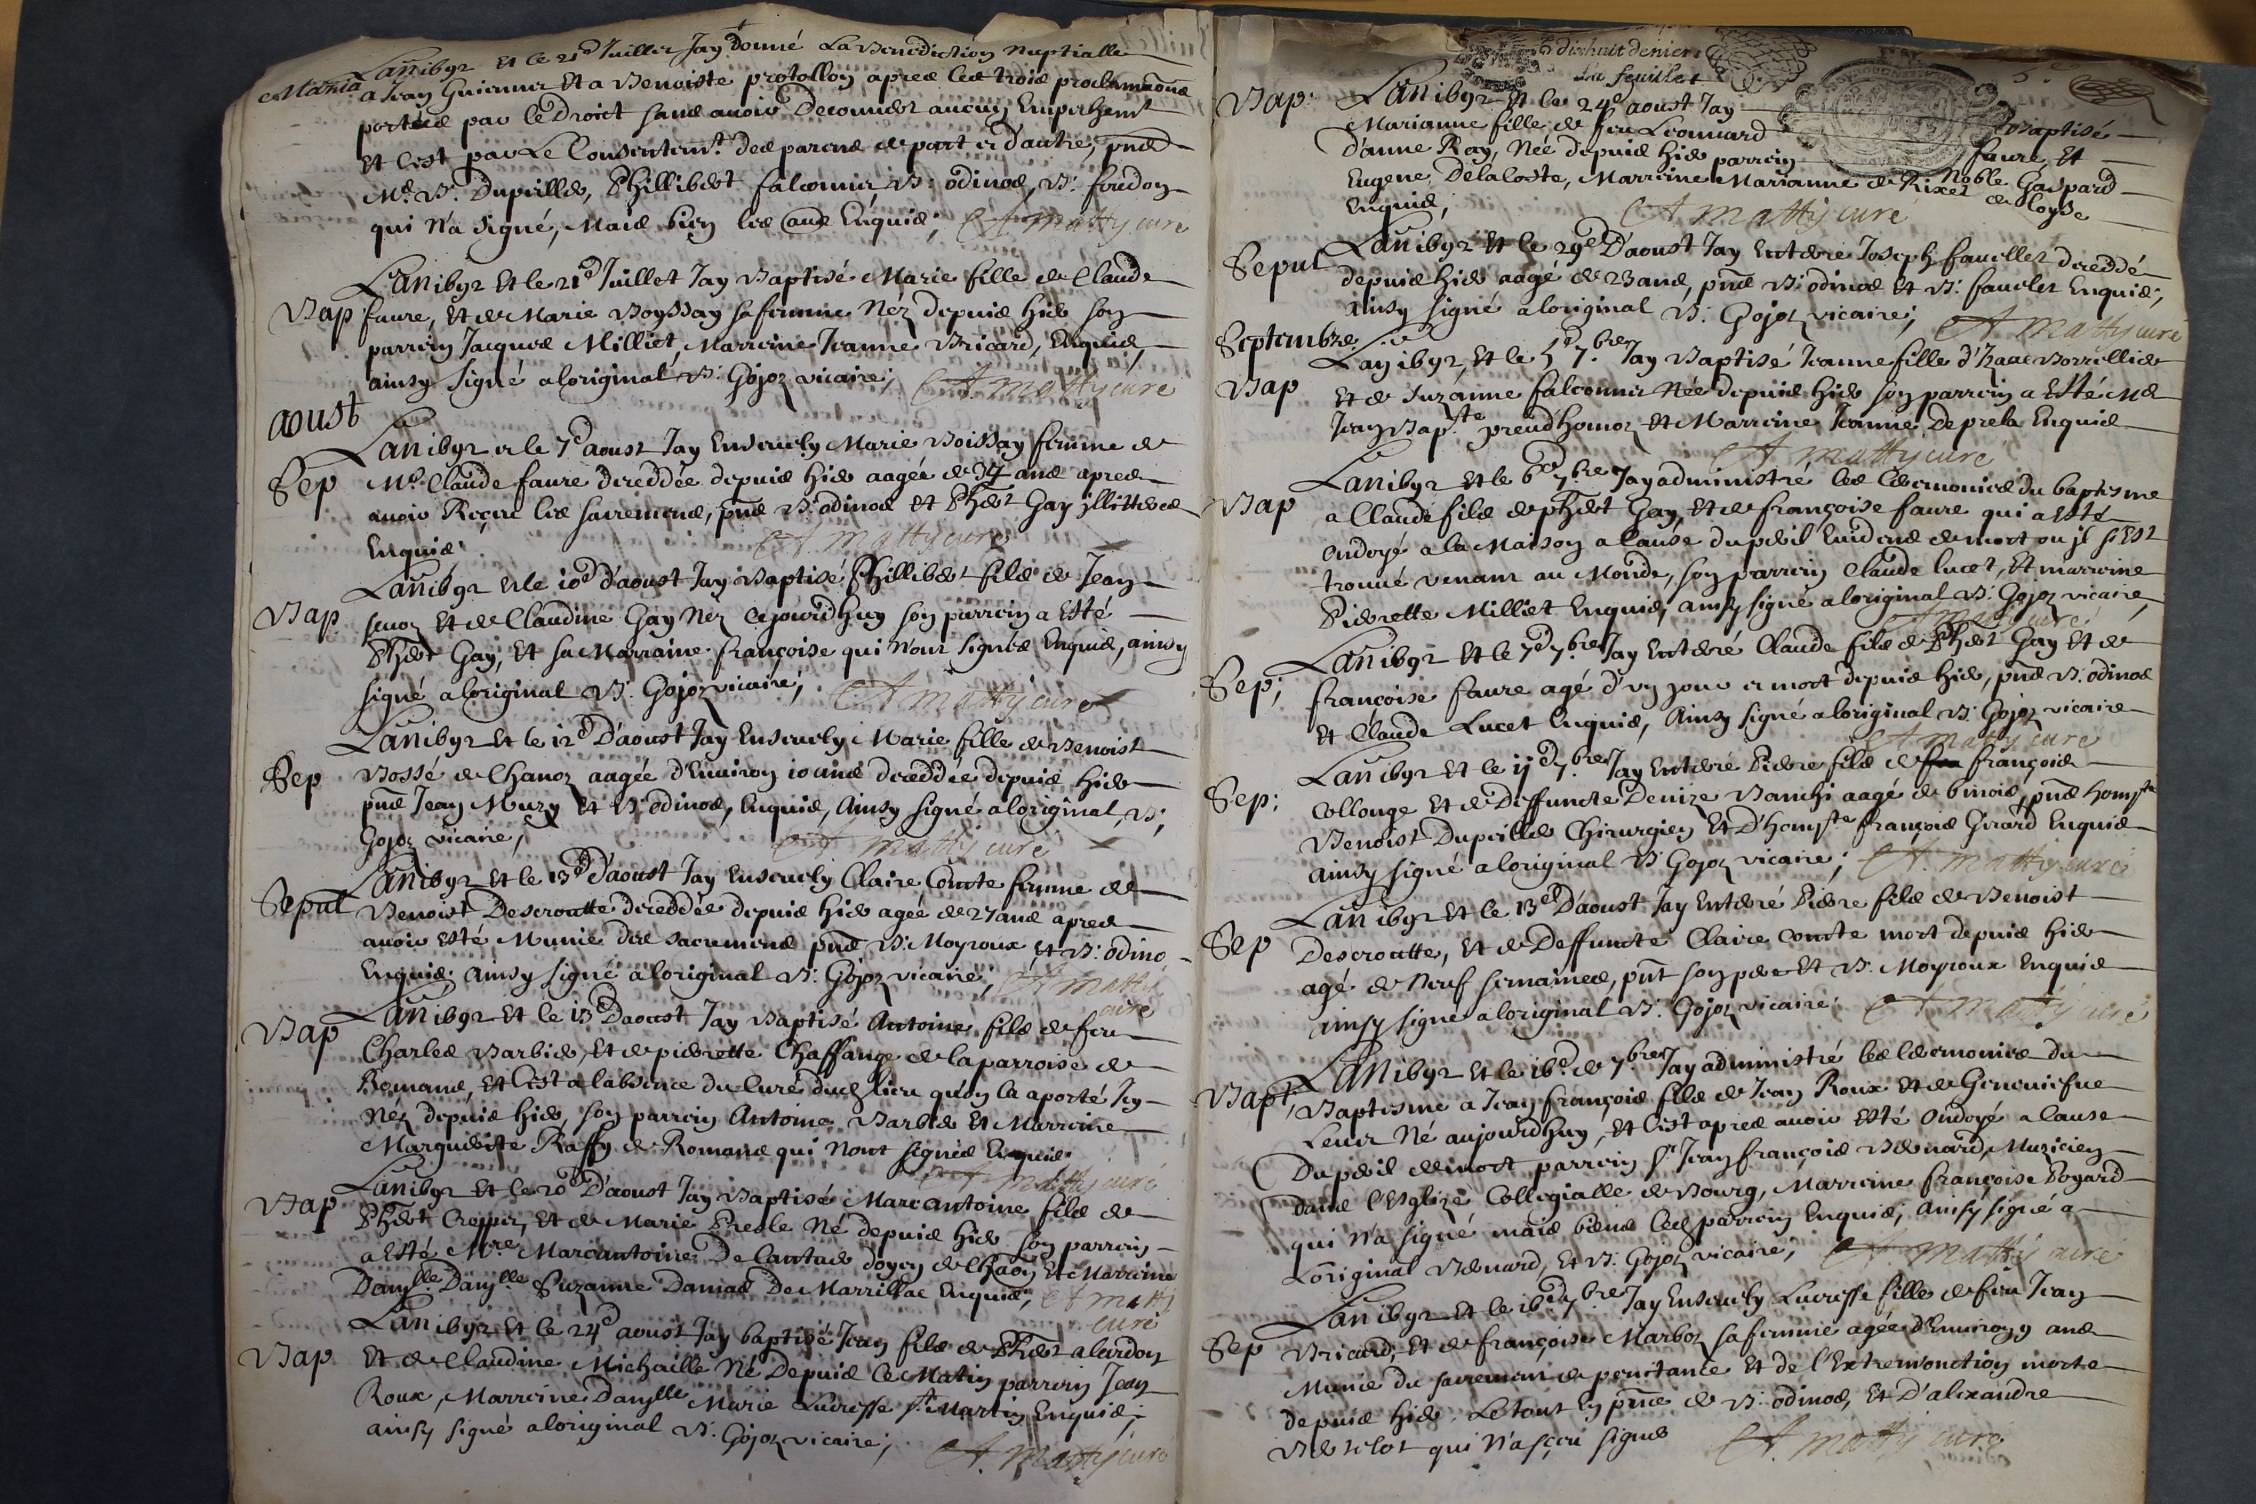 Maria
Lan 1692 Et le 21e Juillet Jay donné La Benediction Nuptialle
a Jean Et a Benoiste protollon apres les trois proclamaõns
portées par le Droict sans avoir Decouvert aucun Empechemt
et C'est par Le Consentemt. des parens de part et d'autre, pñs
Me. B. Dupuilles, Phillibert falconnier B. odinos, B. foudon
qui N'a signé, Mais bien les aus Enquis; A. matty curé
Bap
L'an 1692 Et le 21e Juillet Jay Baptisé Marie fille de Claude
faure, et de Marie Boyssay sa femme Néz depuis hier son
parrein Jacques Milliet, Marreine Jeanne Bricard, Enquis,
ainsy signé a loriginal B. Gojoz vicaire; A. matty curé
aoust
Sep
Lan 1692 et le 7e aoust Jay Ensevely Marie Boissay femme de
Me. Claude faure decedée depuis hier aagée de 34 ans apres
avoir Reçeu les sacremens, pñs B. odinos Et Phbt Gay illitterés
Enquis. A. matty curé
Bap
Lan 1692 et le 10e d'aoust Jay Baptisé Phillibert fils de Jean
et de Claudine Gay Nez cejourdhuy son parrein a Esté
Phbt Gay, Et sa Marraine françoise qui Nont signés Enquis, ainsy
signé a loriginal B. Gojoz vicaire; A. matty curé
Sep
Lan 1692 et le 12e D'aoust Jay Ensevely Marie fille de Benoist
Bossé de Chanoz aagée d'Environ 10 ans decedée depuis hier
pñs Jean Muzy et B. odinos, Enquis, Ainsy signé a loriginal, B.
Gojoz vicaire; A. matty curé
Sepul
Lan 1692 et le 13e d'aoust Jay Ensevely Claire Comte femme de
Benoist Descroutte decedée depuis hier agée de 27 ans apres
avoir Esté Munie des sacremens pñs B. Moyroux et B. odino
Enquis; ainsy signé a loriginal B. Gojoz vicaire; A. matty
curé
Bap
Lan 1692 et le 13e Daoust Jay Baptisé Antoine fils de feu
Charles Barbier, Et de pierrette Chaffange de la parroise de
Romans, et C'est a l'absence du Curé dud lieu qu'on la aporté Icy
Néz depuis hier, son parrein Antoine Barbier Et Marreine
Marguerite Raffy de Romans qui Nont signés Enquis
A. matty curé
Bap
Lan 1692 Et le 20e D'aoust Jay Baptisé Marcantoine fils de
Phbt Crespier, Et de Marie Né depuis hier son parrein
a Esté Mre Marcantoine De doyen de Et Marreine
Damlle Damlle Suzanne Damas De Marrillac Enquis; A. matty
curé
Bap
Lan 1692 Et le 24e aoust Jay baptisé Jean fils de Phbt alardon
Et de Claudine Michaille Né Depuis Ce Matin parrein Jean
Roux, Marreine Damlle Marie Lucresse st Martin Enquis;
ainsy signé a loriginal B. Gojoz vicaire; A. matty curé
dixhuit deniers
du feuillet
Bap.
Lan 1692 Et le 24e aoust Jay Baptisé
Marianne fille de feu Leonnard faure, Et
d'anne Ray, Née depuis hier parrein Noble Gaspard
Eugene Delacoste, Marreine Marianne de Rixet de Loyse
Enquis; A matty curé
Sepul
Lan 1692 Et le 29e D'aoust Jay Enterré Joseph faucllet decedé
depuis hier aagé de 23 ans, pñs B. odinos Et B. fauclet Enquis;
ainsy signé a loriginal B. Gojoz vicaire; A. matty curé
Septembre
Bap
Lan 1692, et le 5e 7.bre Jay Baptisé Jeanne fille d'Izaac
Et de Suzanne falconnier Née depuis hier son parrein a Esté Me
Jean Bapt.te preudhomoz Et Marreine Jeanne Deprela Enquis
A matty curé
Bap
Lan 1692 et le 6e 7.bre Jay administré les Ceremonies du baptesme
a Claude fils de Phbt Gay, et de françoise faure qui a Esté
ondoyé a la Maison a Cause du peril Evidens de mort ou jl s'Est
trouvé venant au Monde, son parrein Claude lucet, Et marreine
Pierrette Milliet Enquis, ainsy signé a loriginal B. Gojoz vicaire,
A matty curé
Sep;
Lan 1692 Et le 7e 7.bre Jay Enterré Claude fils de Phbt Gay Et de
françoise faure agé d'un jour et mort depuis hier, pñs B. odinos
Et Claude Lucet Enquis, Ainsy signé a loriginal B. Gojoz vicaire
A matty curé
Sep;
Lan 1692 Et le 11e 7.bre Jay Enterré Pierre fils de françois
Collonge Et de Deffuncte Denize Banchi aagé de 6 mois, pñs homste
Benoist Dupuilles Chirurgien Et D'homste françois Girard Enquis
ainsy signé a loriginal B. Gojoz vicaire; A. matty curé
Sep
Lan 1692 Et le 13e D'aoust Jay Enterré Pierre fils de Benoist
Descroutte, Et de Deffuncte Claire comte mort depuis hier
agé de Neuf semaines, pñt son pere Et B. Moyroux Enquis
ainsy signé a loriginal B. Gojoz vicaire; A matty curé
Bapt;
Lan 1692 Et le 16e de 7.bre Jay administré les Ceremonies du
Baptesme a Jean françois fils de Jean Roux Et de Genevieve
Levir Né aujourdhuy, et C'est apres avoir Esté ondoyé a Cause
Du peril de mort parrein Sr Jean françois Benard, Muzicien
dans l'Esglize Collegialle de Bourg, Marreine françoise Bogard
qui N'a signé mais biens led parrein Enquis; ainsy signé a
Loriginal Benard, Et B. Gojoz vicaire; A. matty curé
Sep
Lan 1692 Et le 16e 7.bre Jay Ensevely Lucresse fille de feu Jean
Bricard; Et de françoise Marboz sa femme agée d'Environ 9 ans
Munie du sacrement de penitance Et de l'Extremonction morte
depuis hier. Le tout En pñce de B. odinos, Et D'alexandre
qui N'a sçeu signer A. matty curé